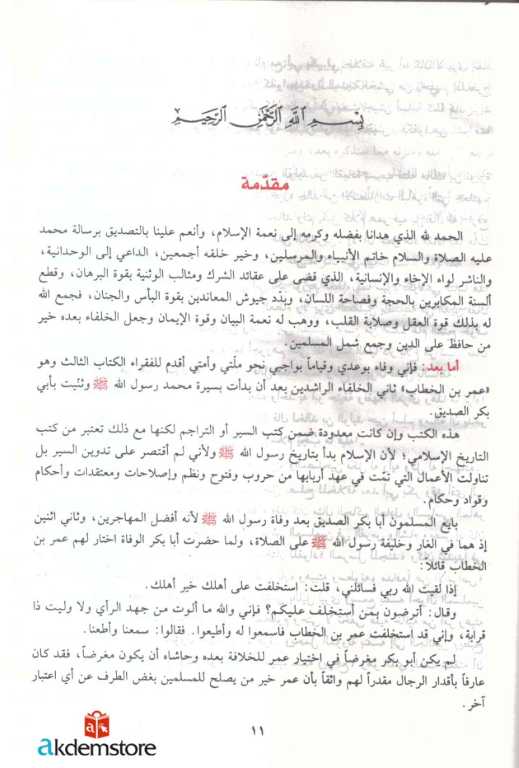 بِسْمِ اللَّهِ الرَّحْمَٰنِ الرَّحِيمِ
مقدّمة
الحمد لله الذي هدانا بفضله وكرمه إلى نعمة الإسلام، وأنعم علينا بالتصديق برسالة محمد
عليه الصلاة والسلام خاتم الأنبياء والمرسلين، وخير خلقه أجمعين، الداعي إلى الوحدانية،
والناشر لواء الإخاء والإنسانية، الذي قضى على عقائد الشرك ومثالب الوثنية بقوة البرهان، وقطع
ألسنة المكابرين بالحجة وفصاحة اللسان، وبدّد جيوش المعاندين بقوة البأس والجنان، فجمع الله
له بذلك قوة العقل وصلابة القلب، ووهب له نعمة البيان وقوة الإيمان وجعل الخلفاء بعده خير
من حافظ على الدين وجمع شمل المسلمين.
أما بعد: فإني وفاء بوعدي وقياماً بواجبي نحو ملّتي وأمتي أقدم للفقراء الكتاب الثالث وهو
«عمر بن الخطاب» ثاني الخلفاء الراشدين بعد أن بدأت بسيرة محمد رسول الله ﷺ وثنّيت بأبي
بكر الصديق.
هذه الكتب وإن كانت معدودة ضمن كتب السير أو التراجم لكنها مع ذلك تعتبر من كتب
التاريخ الإسلامي؛ لأن الإسلام بدأ بتاريخ رسول الله ﷺ ولأني لم أقتصر على تدوين السير بل
تناولت الأعمال التي تمّت في عهد أربابها من حروب وفتوح ونظم وإصلاحات ومعتقدات وأحكام
وقواد وحكام.
بايع المسلمون أبا بكر الصديق بعد وفاة رسول الله ﷺ لأنه أفضل المهاجرين، وثاني اثنين
إذ هما في الغار وخليفة رسول الله ﷺ على الصلاة، ولما حضرت أبا بكر الوفاة اختار لهم عمر بن
الخطاب قائلاً:
إذا لقيت الله ربي فسائلني، قلت: استخلفت على أهلك خير أهلك.
وقال: أترضون بمن أستخلف عليكم؟ فإني والله ما ألوت من جهد الرأي ولا وليت ذا
قرابة، وإني قد استخلفت عمر بن الخطاب فاسمعوا له وأطيعوا. فقالوا: سمعنا وأطعنا.
لم يكن أبو بكر مغرضاً في اختيار عمر للخلافة بعده وحاشاه أن يكون مغرضاً، فقد كان
عارفاً بأقدار الرجال مقدراً لهم واثقاً بأن عمر خير من يصلح للمسلمين بغض الطرف عن أي اعتبار
آخر.
١١
akdemstore